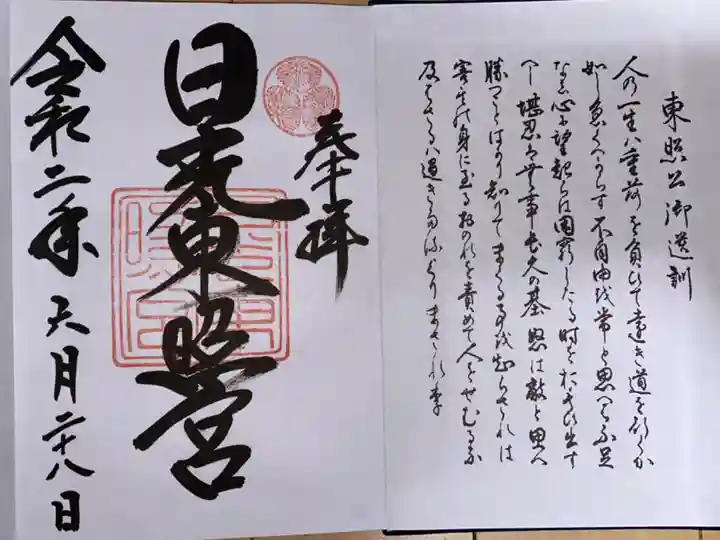 東照公御遺訓
人の一生ハ重荷を負ひて遠き道を行くか
如し急くへからす不自由を常と思へハ不足
なし心に望起らは困窮したる時を
へし堪忍は無事長久の基怒は敵と思へ
勝つことはかり知りてまくる事を知らされは
害其身に至るおのれを責めて人をせむるな
及はさるハ過きたるよりまされり
奉拝
日光東照宮
令和二年六月二十八日